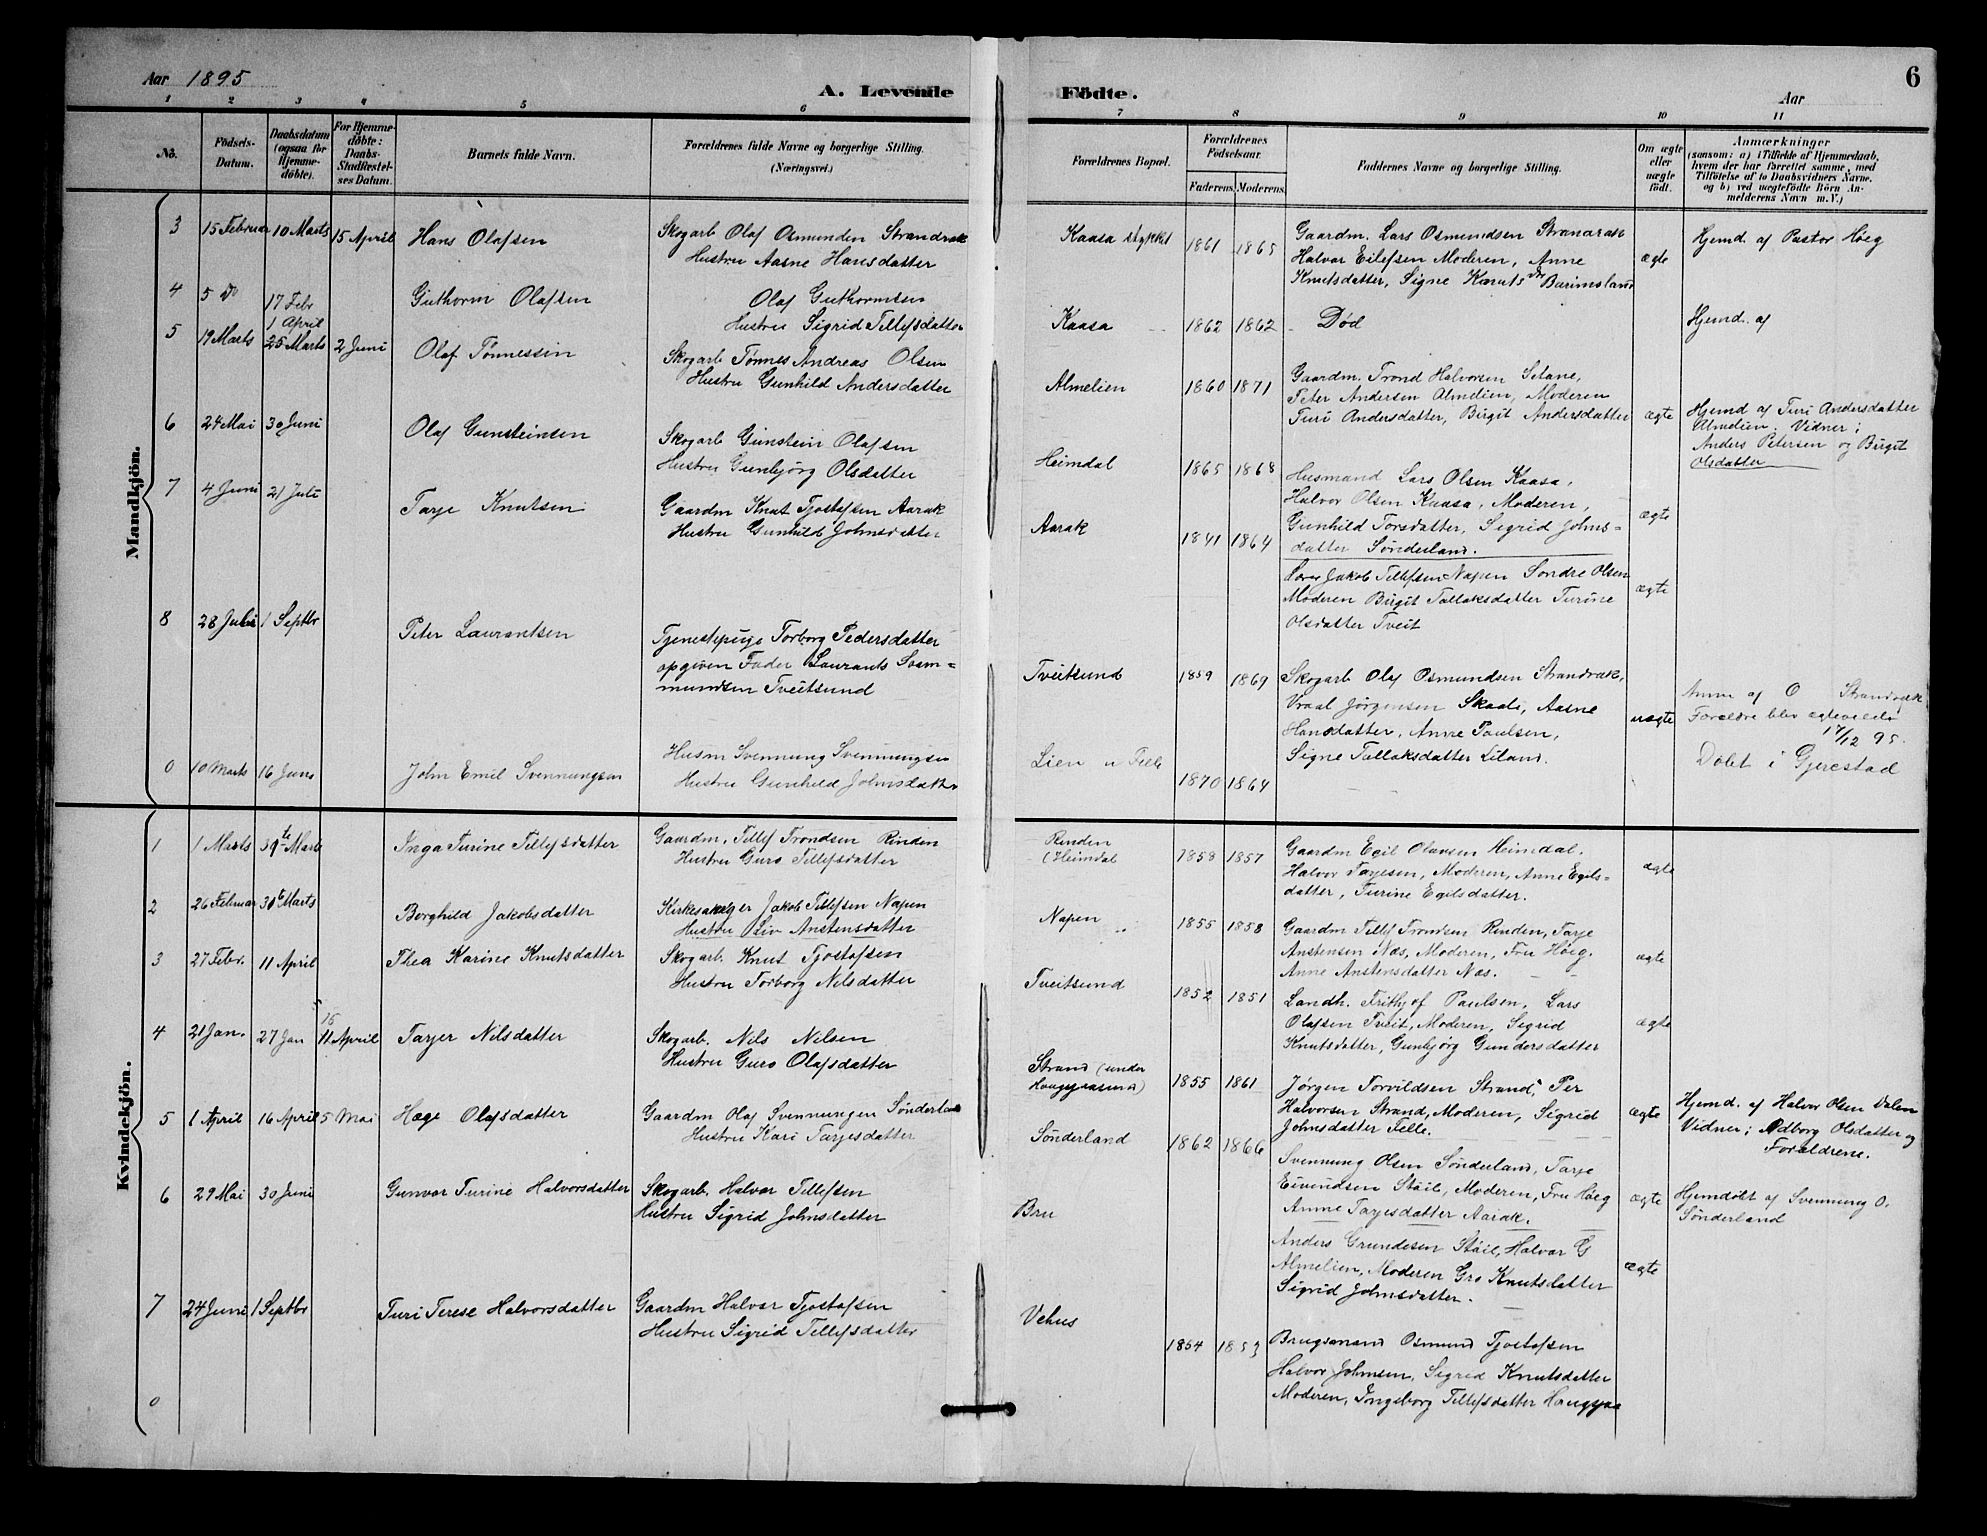 Aar 1895
A. Levende Födte.
Aar
6
1 2 3 4 5 6 7 8 9 10 11
No.
Födsels-Datum.
Daabsdatum (ogsaa for Hjemme-döbte).
For Hjemme-döbte: Daabs-Stadfæstel-ses Datum.
Barnets fulde Navn.
Forældrenes fulde Navne og borgerlige Stilling.
(Næringsvei.)
Forældrenes Bopæl.
Forældrenes Födselsaar.
Faderens. Moderens.
Faddernes Navne og borgerlige Stilling.
Om ægte eller uægte født.
Anmærkninger
(saasom: a) i Tilfælde af Hjemmedaab,
hvem der har forrettet samme, med
Tilföielse af to Daabsvidners Navne,
og b) ved uægtefödte Börn An-
melderens Navn m. V.)
Mandkjön.
3 15 Februar 10 Marts 15 April Hans Olafsen
Skogarb Olaf Osmunden Strandrak
Hustru Aasne Hansdatter
Kaasa stykket 1861 1865
Gaardm. Lars Osmundsen Strandrak
Halvor Eilefsen Moderen, Anne
Knutsdatter, Signe Knuts dtr Burimsland
ægte
Hjemd. af Pastor Høeg
4 5 Do 17 Febr Guthorm Olafsen
Olaf Guthormsen
Hustru Sigrid Tellefsdatter
Kaasa 1862 1862 Død
Hjemd. af
5 19 Marts 1 April 25 Marts 2 Juni Olaf Tønnessen
Skogarb Tønnes Andreas Olsen
Hustru Gunhild Andersdatter
Almelien 1860 1871
Gaardm. Trond Halvorsen Setane,
Peter Andersen Almelien, Moderen
Turi Andersdatter, Birgit Andersdatter
ægte
Hjemd af Turi Andersdatter
Almelien. Vidner:
Anders Petersen og Birgit
Olsdatter
6 24 Mai 30 Juni Olaf Gunsteinsen
Skogarb Gunstein Olafsen
Hustru Gunbjørg Olsdatter
Heimdal 1865 1868
Husmand Lars Olsen Kaasa,
Halvor Olsen Kaasa, Moderen,
Gunhild Torsdatter, Sigrid Johns-
datter Sønderland.
ægte
7 4 Juni 21 Juli Tarje Knutsen
Gaardm Knut Tjostofsen Aarak
Hustru Gunhild Johnsdatter
Aarak 1841 1864
Lærer Jakob Tellefsen Napen Sondre Olsen
Moderen Birgit Tallaksdatter Turine
Olsdatter Tveit
ægte
8 28 Juli 1 Septbr Peter Laurantsen
Tjenestepige Torborg Pedersdatter
opgiven Fader Laurants Saam=
mundsen Tveitsund
Tveitsund 1859 1869
Skogarb Olaf Osmundsen Strandrak,
Vraal Jørgensen Skaali, Aasne
Hansdatter, Anne Paulsen,
Signe Tallaksdatter Liland.
uægte
Anm af O Strandrak
Forældre blev ægteviede
17/12 95.
0 10 Marts 16 Juni John Emil Svennungsen
Husm Svennung Svennungsen
Hustru Gunhild Johnsdatter
Lien u Felle 1870 1864
Døbt i Gjerestad
Kvindekjön.
1 1 Marts 31te Marts Inga Turine Tellefsdatter
Gaardm. Tellef Trondsen Rinden
Hustru Guro Tellefsdatter
Rinden
(Heimdal 1858 1857
Gaardm Egil Olavsen Heimdal.
Halvor Tarjesen, Moderen, Anne Egils=
datter, Turine Egilsdatter.
ægte
2 26 Februar 31te Marts Borghild Jakobsdatter
Kirkesanger Jakob Tellefsen Napen
Hustru Liv Anstensdatter
Napen 1855 1858
Gaardm Tellef Trondsen Rinden, Tarje
Anstensen Næs, Moderen, Fru Høeg.
Anne Anstensdatter Næs.
ægte
3 27 Febr. 11 April Thea Karine Knutsdatter
Skogarb. Knut Tjostofsen
Hustru Torborg Nilsdatter
Tveitsund 1852 1851
Landh. Frithjof Paulsen, Lars
Olafsen Tveit, Moderen, Sigrid
Knutsdatter, Gunbjørg Gundersdatter
ægte
4 21 Jan. 27 Jan 15 11 April Tarjer Nilsdatter
Skogarb. Nils Nilsen
Hustru Guro Olafsdatter
Strand (under
Haugsjaasund) 1855 1861
Jørgen Torvildsen Strand, Per
Halvorsen Strand, Moderen, Sigrid
Johnsdatter Felle.
ægte
5 1 April 16 April 5 Mai Hæge Olafsdatter
Gaardm Olaf Svennungen Sønderland
Hustru Kari Tarjesdatter
Sønderland 1862 1866
Svennung Olsen Sønderland, Tarje
Eivindsen Støil, Moderen, Fru Høeg
Anne Tarjesdatter Aarak.
ægte
Hjemd. af Halvor Olsen Dalen
Vidner; Adborg Olsdatter og
Forældrene.
6 29 Mai 30 Juni Gunvor Turine Halvorsdatter
Skogarb. Halvor Tellefsen
Hustru Sigrid Johnsdatter
Bru
Anders Grundesen Støil, Halvor G
Almelien, Moderen Gro Knutsdatter
Sigrid Johnsdatter.
ægte
Hjemdøbt af Svennung O.
Sønderland
7 24 Juni 1 Septbr Turi Terese Halvorsdatter
Gaardm Halvor Tjostofsen
Hustru Sigrid Tellefsdatter
Vehus 1854 1853
Brugsmand Osmund Tjostofsen
Halvor Johnsen, Sigrid Knutsdatter
Moderen, Ingeborg Tellefsdatter Haugsjaa
0